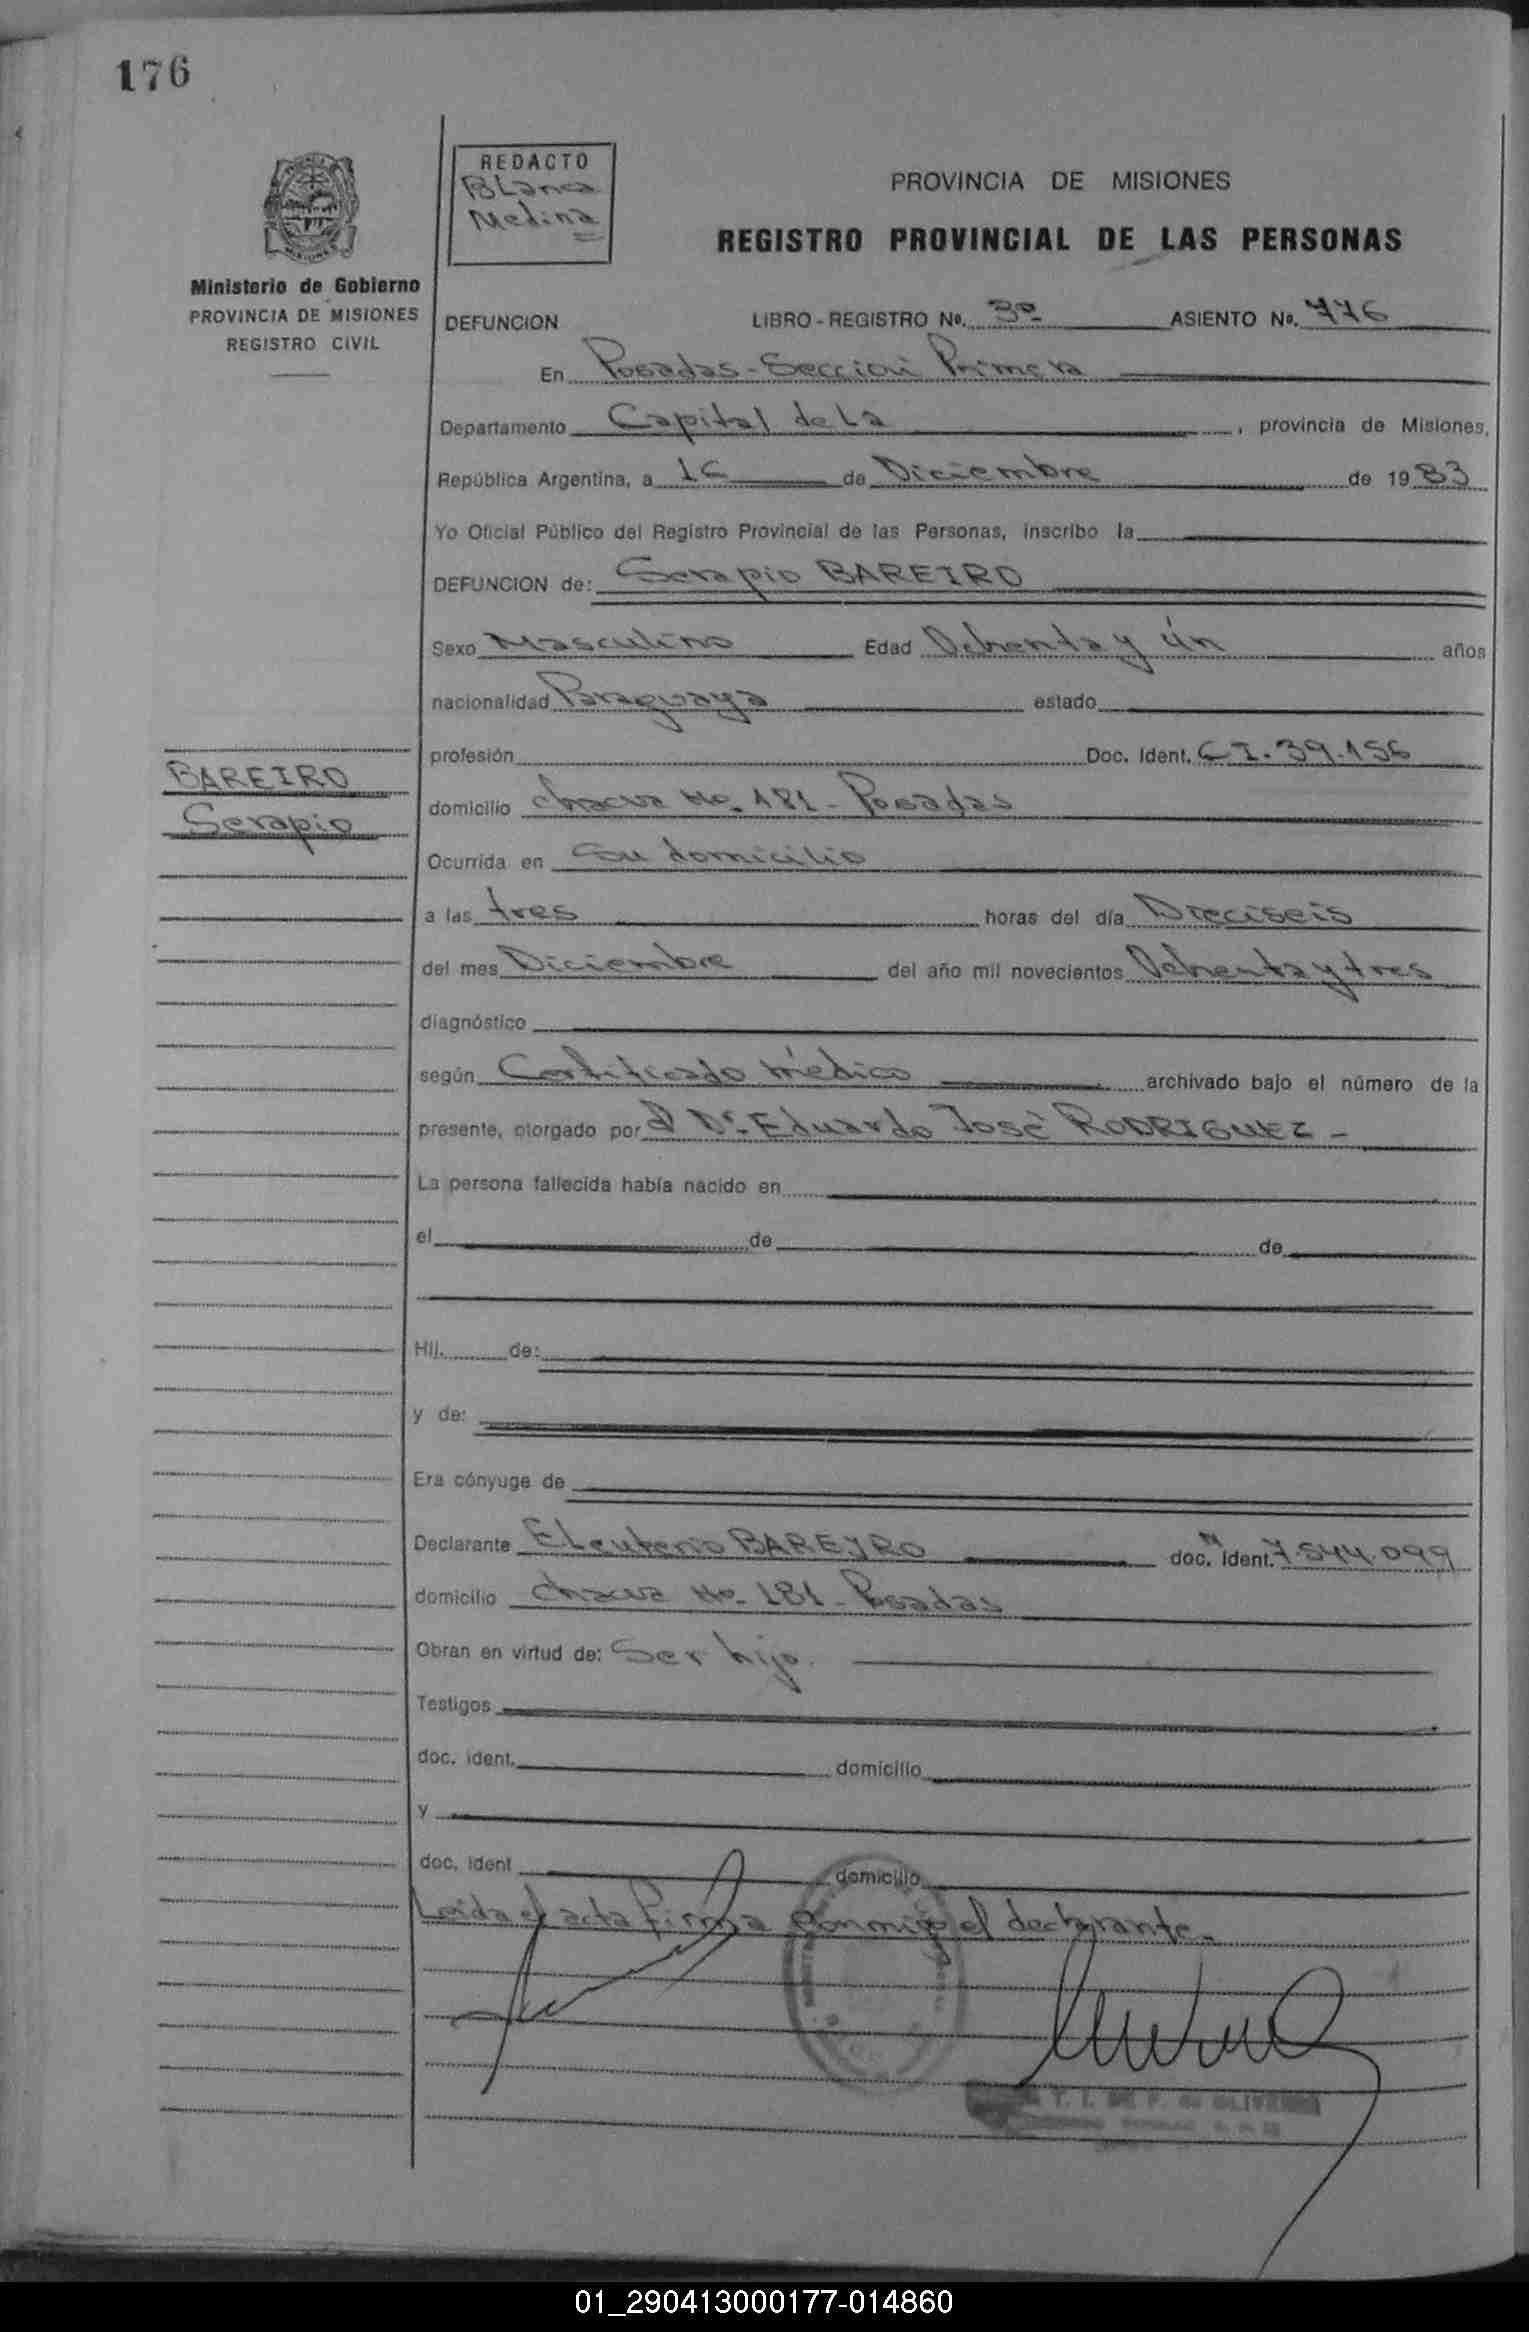 176
REDACTO
Blanca
Medina
PROVINCIA DE MISIONES
REGISTRO PROVINCIAL DE LAS PERSONAS
Ministerio de Gobierno
PROVINCIA DE MISIONES
REGISTRO CIVIL
DEFUNCION LIBRO-REGISTRO No. 3º ASIENTO No. 776
En Posadas - Sección Primera
Departamento Capital de la, provincia de Misiones,
República Argentina, a 16 de Diciembre de 1983
Yo Oficial Público del Registro Provincial de las Personas, inscribo la
DEFUNCION de: Serapio BAREIRO
Sexo Masculino Edad Ochenta y ún años
nacionalidad Paraguaya estado
profesión Doc. Ident. C I. 39.156
BAREIRO
Serapio
domicilio chacra No. 181 - Posadas
Ocurrida en su domicilio
a las tres horas del día Dieciseis
del mes Diciembre del año mil novecientos Ochenta y tres
diagnóstico
según Certificado médico archivado bajo el número de la
presente, otorgado por el Dr. Eduardo José RODRIGUEZ -
La persona fallecida había nacido en
el de de
Hij. de:
y de:
Era cónyuge de
Declarante Eleuterio BAREYRO doc. Ident. 7.544.099
domicilio chacra No. 181 - Posadas
Obran en virtud de: Ser hijo.
Testigos
doc. ident. domicilio
y
doc. ident domicilio
Leida el acta firma conmigo el declarante.
T. I. DE F. de OLIVEIRA
01_290413000177-014860